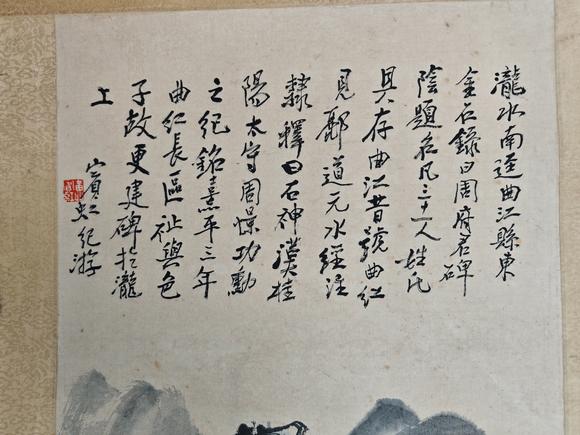 瀧水南逕曲江縣東
金石錄曰周府君碑
陰題名凡三十一人姓氏
具存曲江昔號曲紅
見酈道元水經注
隸釋曰石神漢桂
陽太守周憬功勳
之紀銘熹平三年
曲紅長區祉與邑
子故更建碑於瀧
上
賓虹紀游